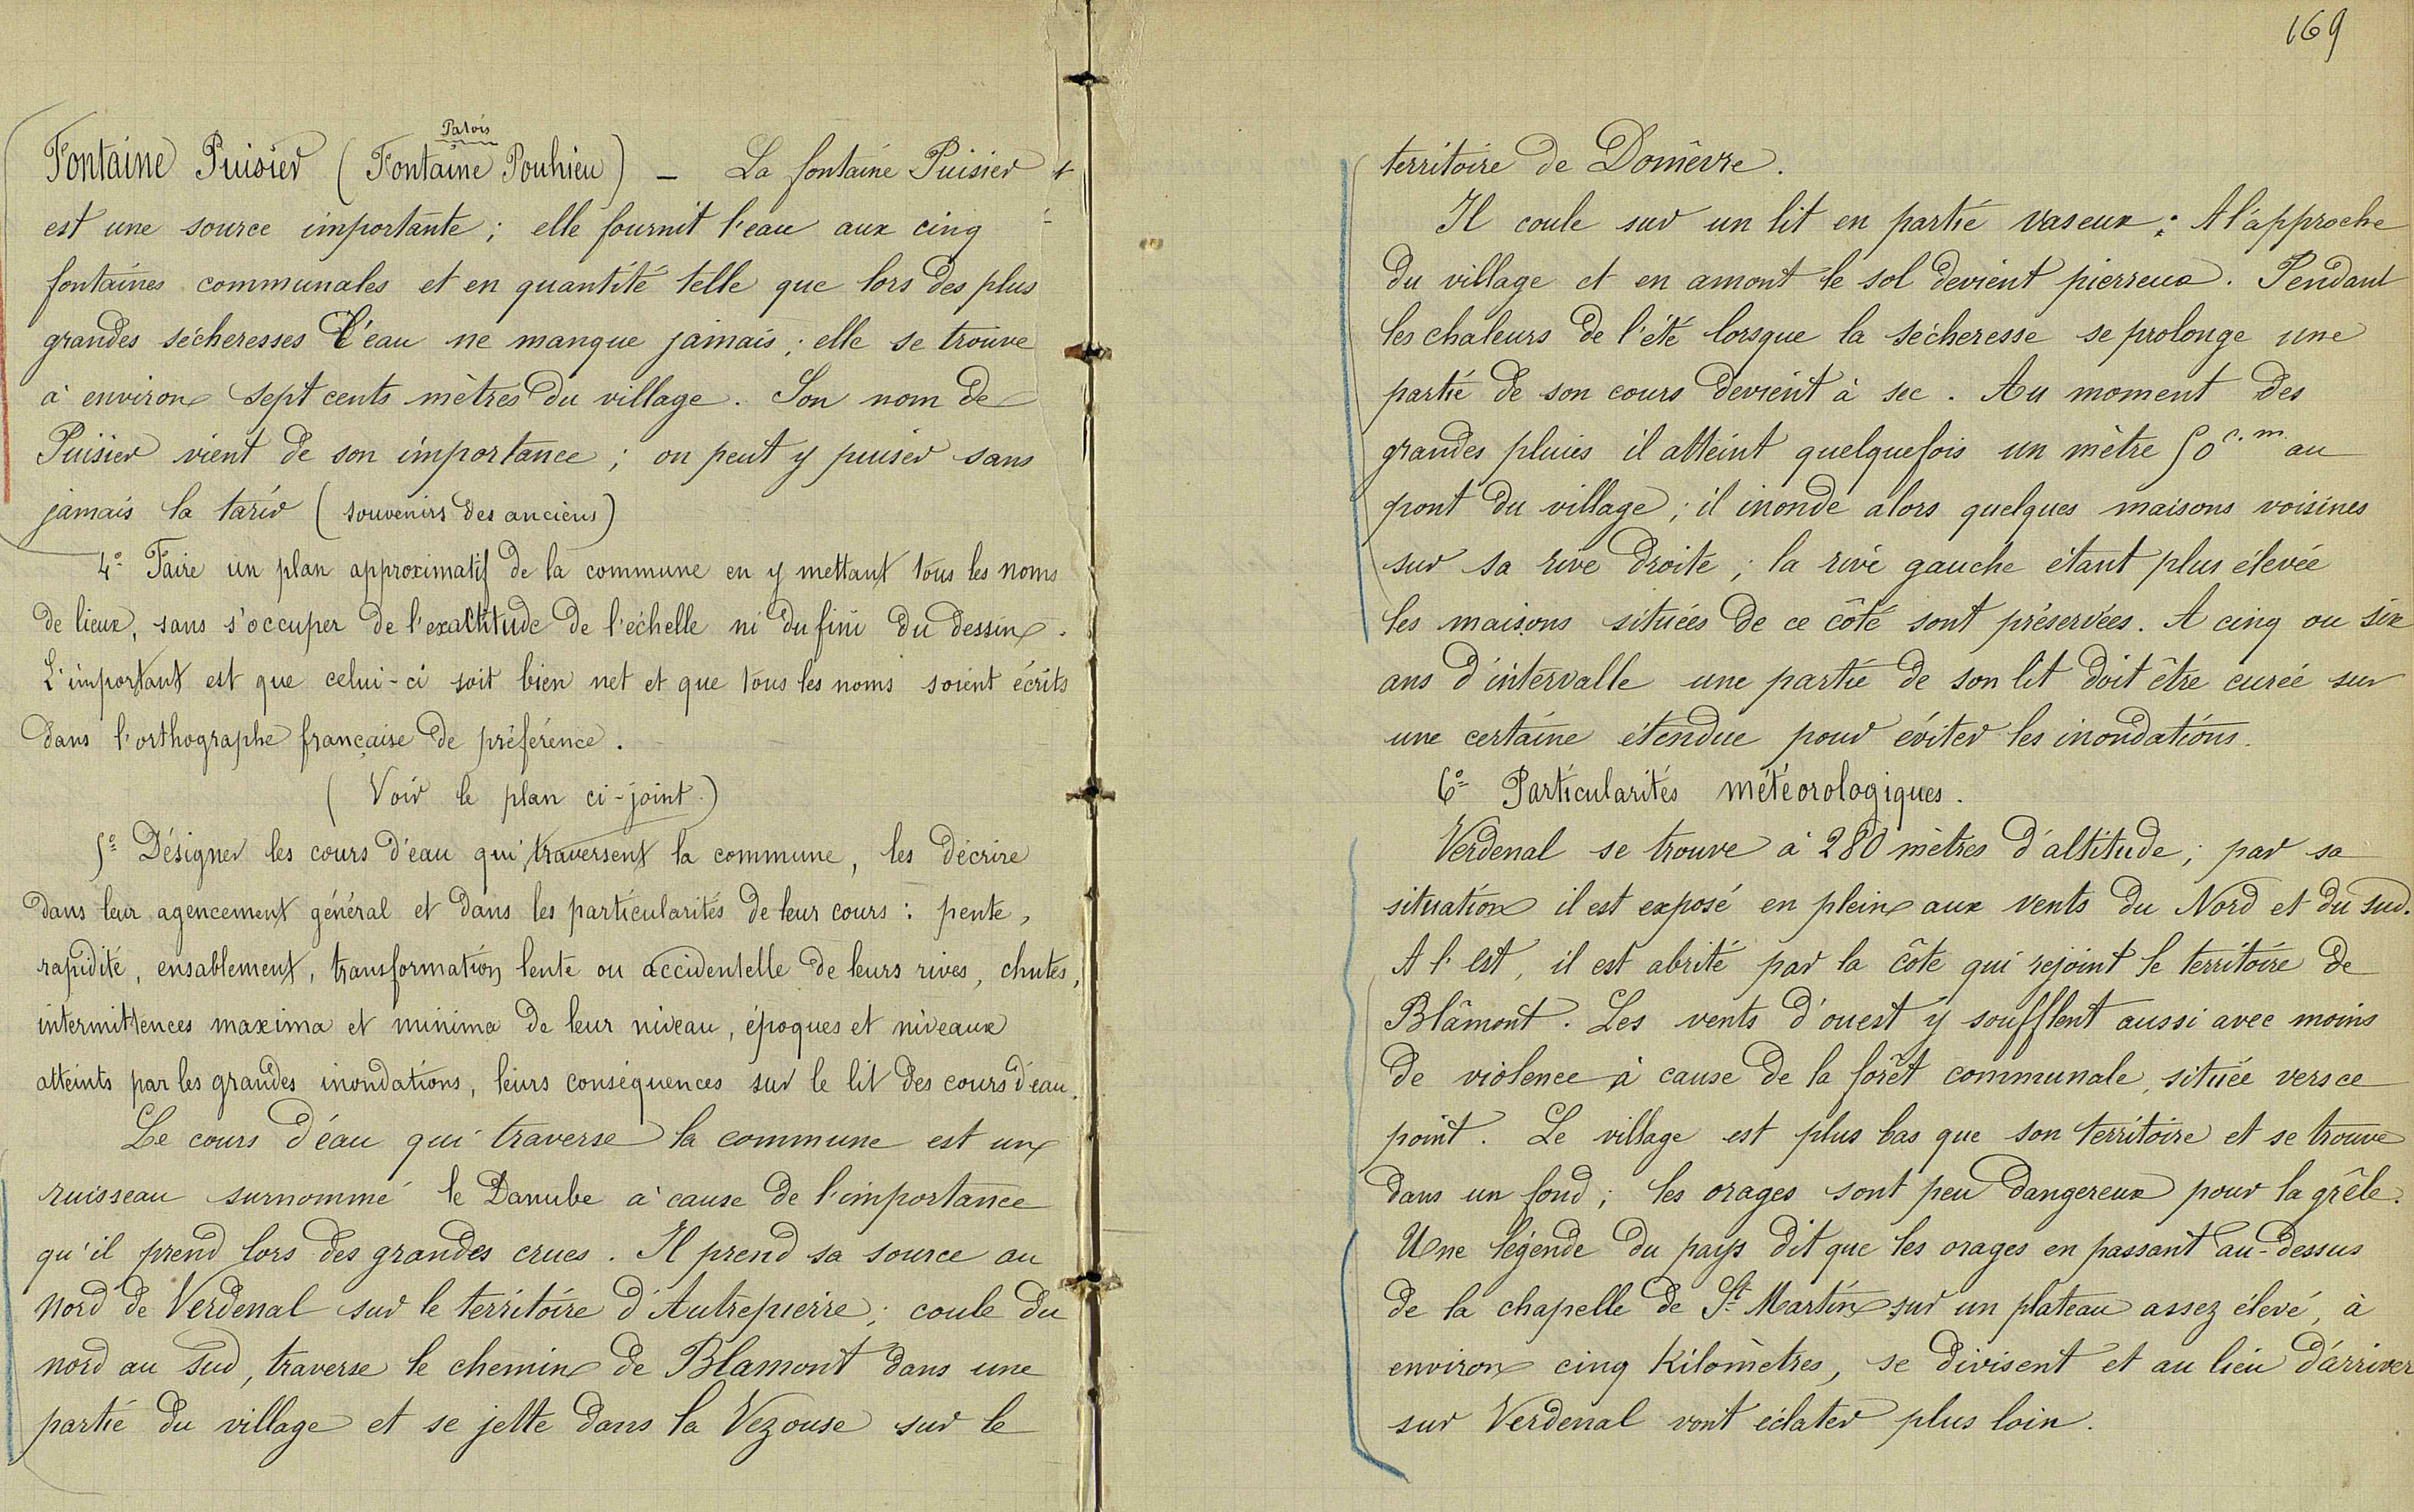 Patois
Fontaine Puisier (Fontaine Pouhieu) – La fontaine Puisier
est une source importante ; elle fournit l'eau aux cinq
fontaines communales et en quantité telle que lors des plus
grandes sécheresses l'eau ne manque jamais ; elle se trouve
à environ sept cents mètres du village. Son nom de
Puisier vient de son importance ; on peut y puiser sans
jamais la tarir (souvenirs des anciens)
4º Faire un plan approximatif de la commune en y mettant tous les noms
de lieux, sans s'occuper de l'exactitude de l'échelle ni du fini du dessin.
L'important est que celui-ci soit bien net et que tous les noms soient écrits
dans l'orthographe française de préférence.
(Voir le plan ci-joint.)
5º Désigner les cours d'eau qui traversent la commune, les décrire
dans leur agencement général et dans les particularités de leur cours : pente,
rapidité, ensablement, transformation lente ou accidentelle de leurs rives, chutes,
intermittences maxima et minima de leur niveau, époques et niveaux
atteints par les grandes inondations, leurs conséquences sur le lit des cours d'eau.
Le cours d'eau qui traverse la commune est un
ruisseau surnommé le Danube à cause de l'importance
qu'il prend lors des grandes crues. Il prend sa source au
nord de Verdenal sur le territoire d'Autrepierre ; coule du
nord au sud, traverse le chemin de Blamont dans une
partie du village et se jette dans la Vezouse sur le
169
territoire de Domêvre.
Il coule sur un lit en partie vaseux ; A l'approche
du village et en amont le sol devient pierreux. Pendant
les chaleurs de l'été lorsque la sécheresse se prolonge une
partie de son cours devient à sec. Au moment des
grandes pluies il atteint quelquefois un mètre 50 c.m. au
pont du village ; il inonde alors quelques maisons voisines
sur sa rive droite ; la rive gauche étant plus élevée
les maisons situées de ce côté sont préservées. A cinq ou six
ans d'intervalle une partie de son lit doit être curée sur
une certaine étendue pour éviter les inondations.
6º Particularités météorologiques.
Verdenal se trouve à 280 mètres d'altitude ; par sa
situation il est exposé en plein aux vents du Nord et du sud.
A l'est, il est abrité par la côte qui rejoint le territoire de
Blâmont. Les vents d'ouest y soufflent aussi avec moins
de violence à cause de la forêt communale, située vers ce
point. Le village est plus bas que son territoire et se trouve
dans un fond ; les orages sont peu dangereux pour la grêle.
Une légende du pays dit que les orages en passant au-dessus
de la chapelle de St Martin sur un plateau assez élevé, à
environ cinq kilomètres, se divisent et au lieu d'arriver
sur Verdenal vont éclater plus loin.